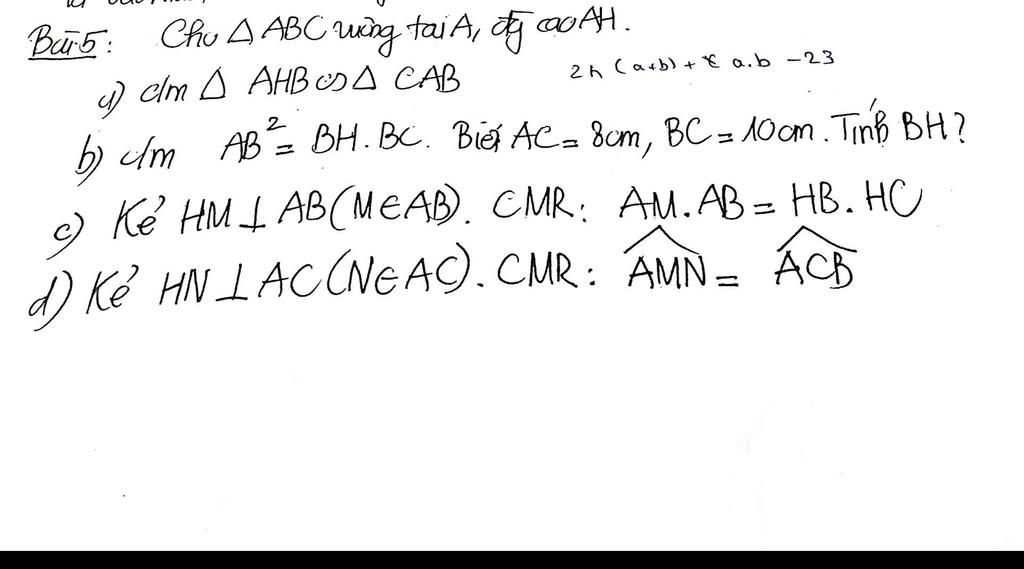 Bài 5: Cho △ ABC vuông tại A, đg cao AH.
a) c/m △ AHB ∽ △ CAB
2h (a+b) + a.b - 23
b) c/m AB² = BH. BC. Biết AC = 8cm, BC = 10cm. Tính BH?
c) Kẻ HM ⊥ AB (M ∈ AB). CMR: AM. AB = HB. HC
d) Kẻ HN ⊥ AC (N ∈ AC). CMR: \widehat{AMN} = \widehat{ACB}